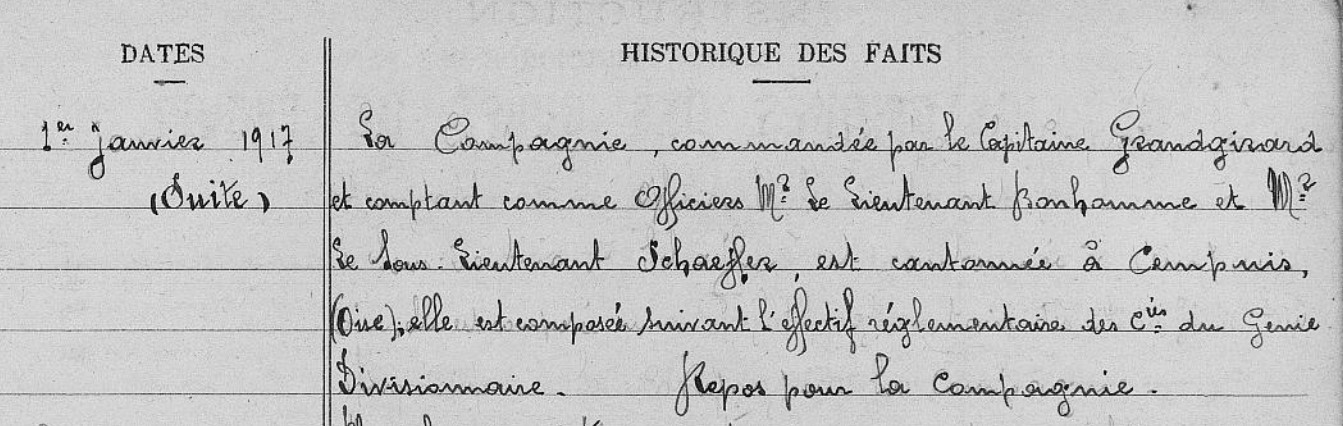 DATES HISTORIQUE DES FAITS
1er janvier 1917 La Compagnie, commandée par le Capitaine Grandgirard
(Suite) et comptant comme Officiers Mr le Lieutenant Bonhomme et Mr
le Sous-Lieutenant Schaeffer, est cantonnée à Cempuis,
(Oise); elle est composée suivant l'effectif réglementaire des Cies du Génie
Divisionnaire. Repos pour la Compagnie.